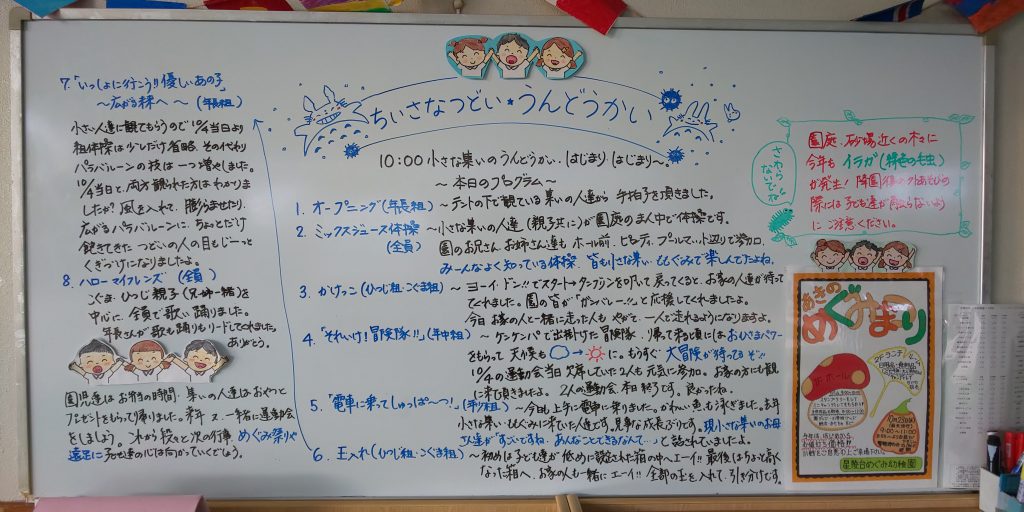 ちいさなつどい★うんどうかい
10:00 小さな集いのうんどうかい、はじまり はじまり〜。
〜本日のプログラム〜
1. オープニング(年長組) 〜テントの下で観ている集いの人達から 手拍子を頂きました。
2. ミックスジュース体操 〜小さな集いの人達(親子共に)が園庭の真ん中で体操です。
(全員) 園のお兄さん、お姉さん達も ホール前、ピロティ、プールサイド辺りで参加。
みーんなよく知っている体操、皆も小さな集い・めぐみで楽しんでたよね。
3. かけっこ(ひつじ組・こぐま組) 〜 ヨーイ・ドン!!でスタート→タンブリンを叩いて戻ってくると、お家の人達が待って
てくれました。園の皆が「ガンバレー!!」と応援してくれましたよ。
今日 お家の人と一緒に走った人も やがて、一人で走れるようになりますよ。
4.「それいけ!冒険隊!!」(年中組) 〜ケンケンパで出掛けた冒険隊、帰って来る頃にはおひさまパワー
をもらって 天候も → に。もうすぐ 大冒険が待ってるぞ!!
10/4の運動会当日 欠席していた2人も 元気に参加。お家の方にも観
に来て頂きましたよ。 2人の運動会、本日 終了です。良かったね。
5.「電車に乗ってしゅっぱーつ!」(年少組) 〜今日も上手に電車に乗りました。かわいい魚も泳ぎました。去年
小さな集い・めぐみに来ていた人達です。見事な成長ぶりです。現小さな集いのお母
さん達が「すごいですね、あんなことできるなんて…」と話されていましたよ。
6. 玉入れ(ひつじ組・こぐま組) 〜初めは子ども達が低めに設定された箱の中へエーイ!! 最後はちょっと高く
なった箱へ、お家の人も一緒にエーイ!! 全部の玉を入れて、引き分けです。
7.「いっしょに行こう!!優しいあの子」
〜広がる緑へ〜 (年長組)
小さい人達に観てもらうので 10/4当日より
組体操は少しだけ省略、その代わり
パラバルーンの技は一つ増やしました。
10/4当日と、両方観られた方は わかりま
したか? 風を入れて、膨らませたり、
広がるパラバルーンに、ちょっとだけ
飽きてきた つどいの人の目もじーっと
くぎづけになりましたよ。
8. ハローマイフレンズ (全員)
こぐま・ひつじ 親子(兄姉一緒)を
中心に、全員で歌い踊りました。
年長さんが歌も踊りもリードしてくれました。
ありがとう。
園児達はお弁当の時間、集いの人達はおやつと
プレゼントをもらって帰りました。来年 又 一緒に運動会
をしましょう。これから 段々と次の行事、めぐみ祭りや
遠足に子ども達の心は向かっていくでしょう。
さわら
ないでね
園庭、砂場近くの木々に
今年も イラガ(緑色の毛虫)
が発生! 降園後の外あそびの
際には子ども達が触らないよう
に ご注意ください。
あきの
めぐみまつり
1F ホール
2F ランチルーム
9:00〜11:00
星陵台めぐみ幼稚園